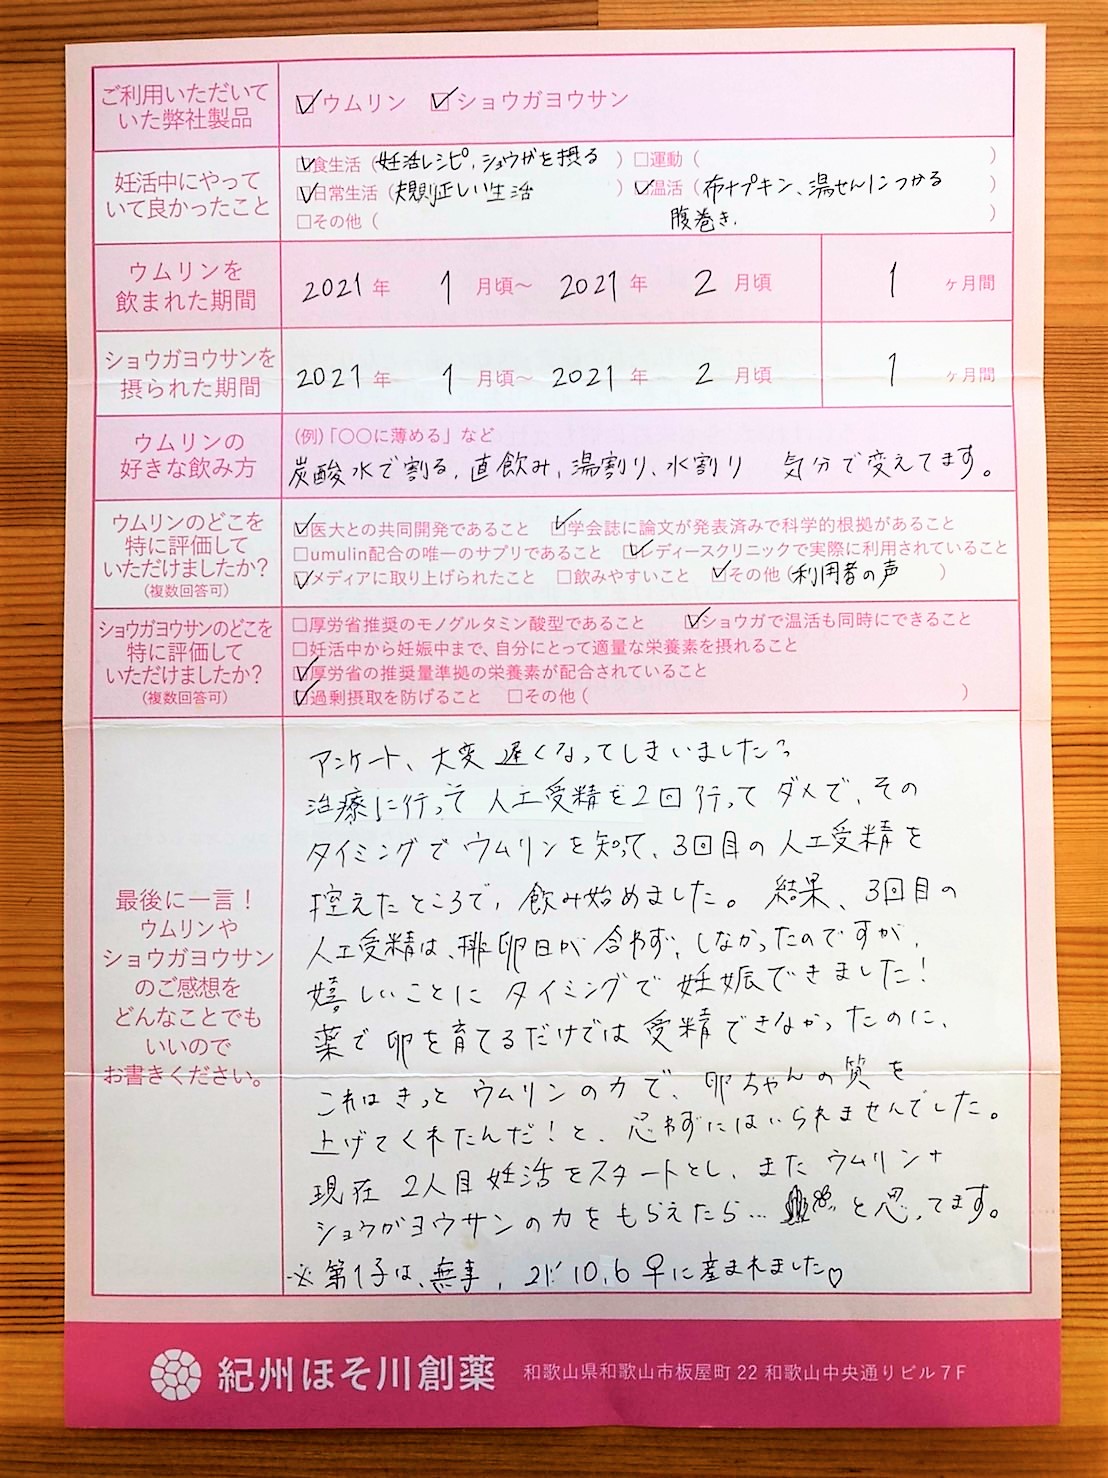 ご利用いただいて
いた弊社製品
☑ウムリン ☑ショウガヨウサン
妊活中にやって
いて良かったこと
☑食生活（妊活レシピ、ショウガを摂る ）□運動（ ）
☑日常生活（規則正しい生活 ）☑温活（布ナプキン、湯せんにつかる ）
□その他（ 腹巻き. ）
ウムリンを
飲まれた期間
2021年 1月頃〜 2021年 2月頃 1ヶ月間
ショウガヨウサンを
摂られた期間
2021年 1月頃〜 2021年 2月頃 1ヶ月間
ウムリンの
好きな飲み方
（例）「〇〇に薄める」など
炭酸水で割る、直飲み、湯割り、水割り 気分で変えてます。
ウムリンのどこを
特に評価して
いただけましたか？
（複数回答可）
☑医大との共同開発であること ☑学会誌に論文が発表済みで科学的根拠があること
□umulin配合の唯一のサプリであること ☑レディースクリニックで実際に利用されていること
☑メディアに取り上げられたこと □飲みやすいこと ☑その他（利用者の声 ）
ショウガヨウサンのどこを
特に評価して
いただけましたか？
（複数回答可）
□厚労省推奨のモノグルタミン酸型であること ☑ショウガで温活も同時にできること
□妊活中から妊娠中まで、自分にとって適量な栄養素を摂れること
☑厚労省の推奨量準拠の栄養素が配合されていること
☑過剰摂取を防げること □その他（ ）
最後に一言！
ウムリンや
ショウガヨウサン
のご感想を
どんなことでも
いいので
お書きください。
アンケート、大変遅くなってしまいました。
治療に行って人工受精を2回行ってダメで、その
タイミングでウムリンを知って、3回目の人工受精を
控えたところで、飲み始めました。結果、3回目の
人工受精は、排卵日が合わず、しなかったのですが、
嬉しいことにタイミングで妊娠できました！
薬で卵を育てるだけでは受精できなかったのに、
これはきっとウムリンの力で、卵ちゃんの質を
上げてくれたんだ！と、思わずにはいられませんでした。
現在2人目妊活をスタートとし、またウムリン+
ショウガヨウサンの力をもらえたら… と思ってます。
※第1子は、無事、21' 10.6 早に産まれました♡
紀州ほそ川創薬 和歌山県和歌山市板屋町 22 和歌山中央通りビル 7F